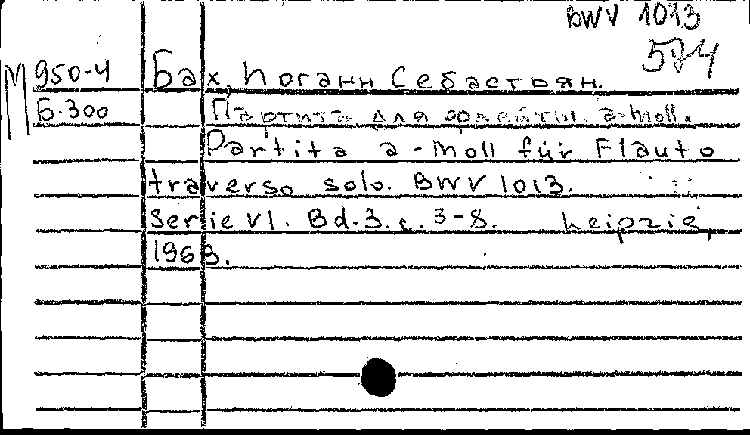 BWV 1013
574
М 950-4 Бах, Иоганн Себастьян.
Б-300 Партита для флейты a-moll.
Partita a-moll für Flauto
traverso solo. BWV 1013.
Serie VI. Bd.3. с. 3-8. Leipzig,
1963.